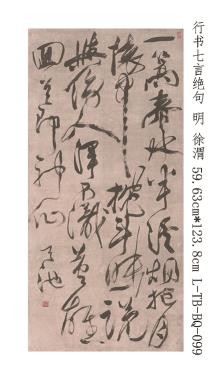 一篙春水半溪烟抱月
懷中枕斗眠說
與傍人渾不識英雄
回首即神仙 天池
行书七言绝句 明 徐渭 59.63cm*123.8cm L-TB-BQ-099